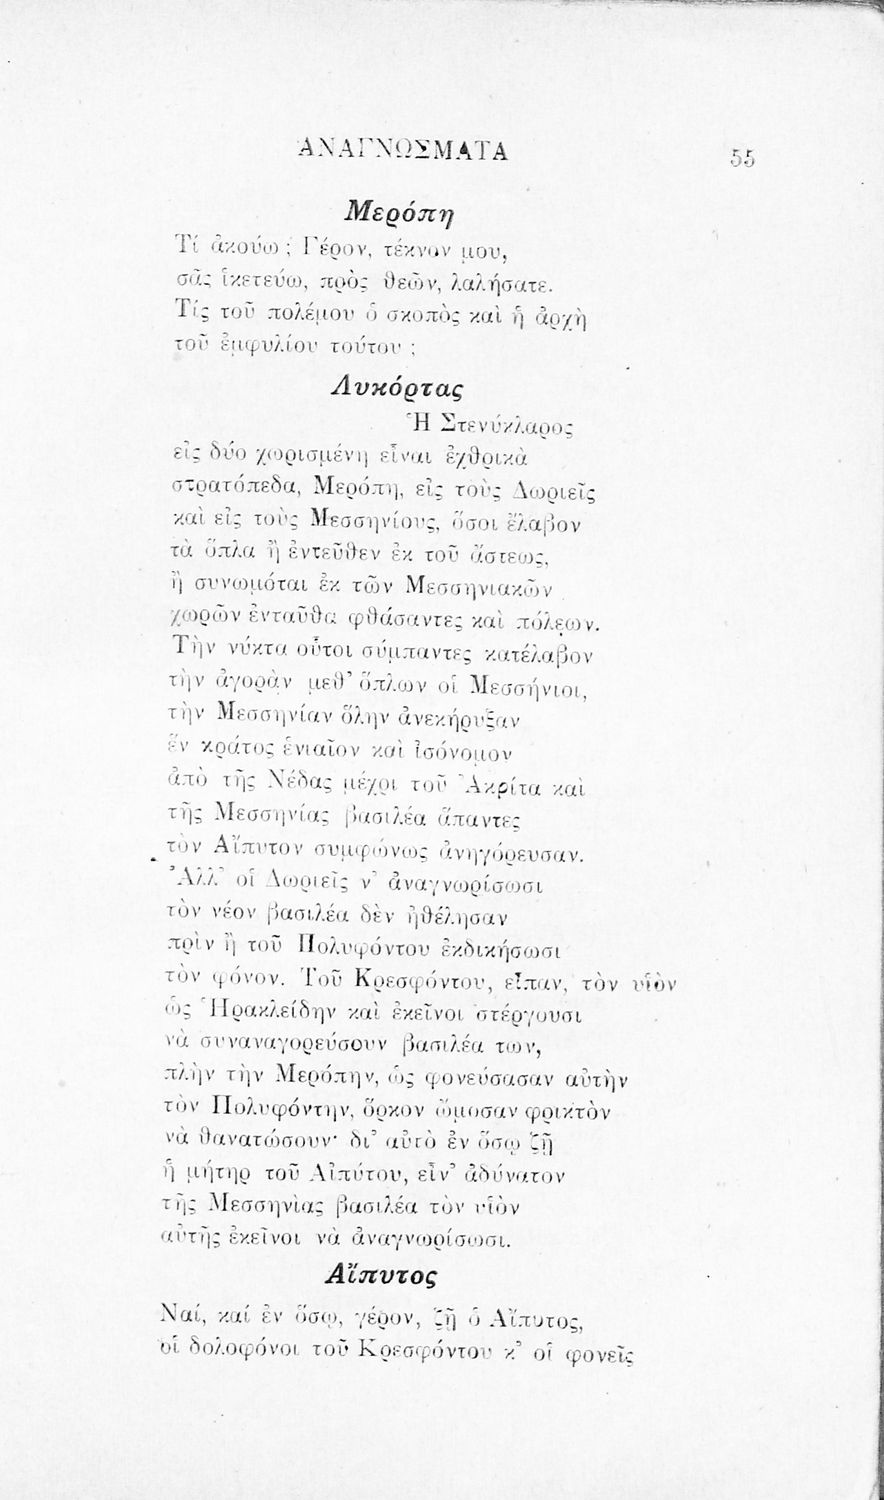 ΑΝΑΓΝΩΣΜΑΤΑ
55
Μερόπη
Τί ἀκούω ; Γέρον, τέκνον μου,
σᾶς ἱκετεύω, πρὸς θεῶν, λαλήσατε.
Τίς τοῦ πολέμου ὁ σκοπὸς καὶ ἡ ἀρχὴ
τοῦ ἐμφυλίου τούτου ;
Λυκόρτας
Ἡ Στενύκλαρος
εἰς δύο χωρισμένη εἶναι ἐχθρικὰ
στρατόπεδα, Μερόπη, εἰς τοὺς Δωριεῖς
καὶ εἰς τοὺς Μεσσηνίους, ὅσοι ἔλαβον
τὰ ὅπλα ἢ ἐντεῦθεν ἐκ τοῦ ἄστεως,
ἢ συνωμόται ἐκ τῶν Μεσσηνιακῶν
χωρῶν ἐνταῦθα φθάσαντες καὶ πόλεων.
Τὴν νύκτα οὗτοι σύμπαντες κατέλαβον
τὴν ἀγορὰν μεθ' ὅπλων οἱ Μεσσήνιοι,
τὴν Μεσσηνίαν ὅλην ἀνεκήρυξαν
ἓν κράτος ἑνιαῖον καὶ ἰσόνομον
ἀπὸ τῆς Νέδας μέχρι τοῦ Ἀκρίτα καὶ
τῆς Μεσσηνίας βασιλέα ἅπαντες
τὸν Αἴπυτον συμφώνως ἀνηγόρευσαν.
Ἀλλ' οἱ Δωριεῖς ν' ἀναγνωρίσωσι
τὸν νέον βασιλέα δὲν ἠθέλησαν
πρὶν ἢ τοῦ Πολυφόντου ἐκδικήσωσι
τὸν φόνον. Τοῦ Κρεσφόντου, εἶπαν, τὸν υἱὸν
ὡς Ἡρακλείδην καὶ ἐκεῖνοι στέργουσι
νὰ συναναγορεύσουν βασιλέα των,
πλὴν τὴν Μερόπην, ὡς φονεύσασαν αὐτὴν
τὸν Πολυφόντην, ὅρκον ὤμοσαν φρικτὸν
νὰ θανατώσουν· δι' αὐτὸ ἐν ὅσῳ ζῇ
ἡ μήτηρ τοῦ Αἰπύτου, εἶν' ἀδύνατον
τῆς Μεσσηνὶας βασιλέα τὸν υἱὸν
αὐτῆς ἐκεῖνοι νὰ ἀναγνωρίσωσι.
Αἴπυτος
Ναί, καί ἐν ὅσῳ, γέρον, ζῇ ὁ Αἴπυτος,
οἱ δολοφόνοι τοῦ Κρεσφόντου κ' οἱ φονεῖς